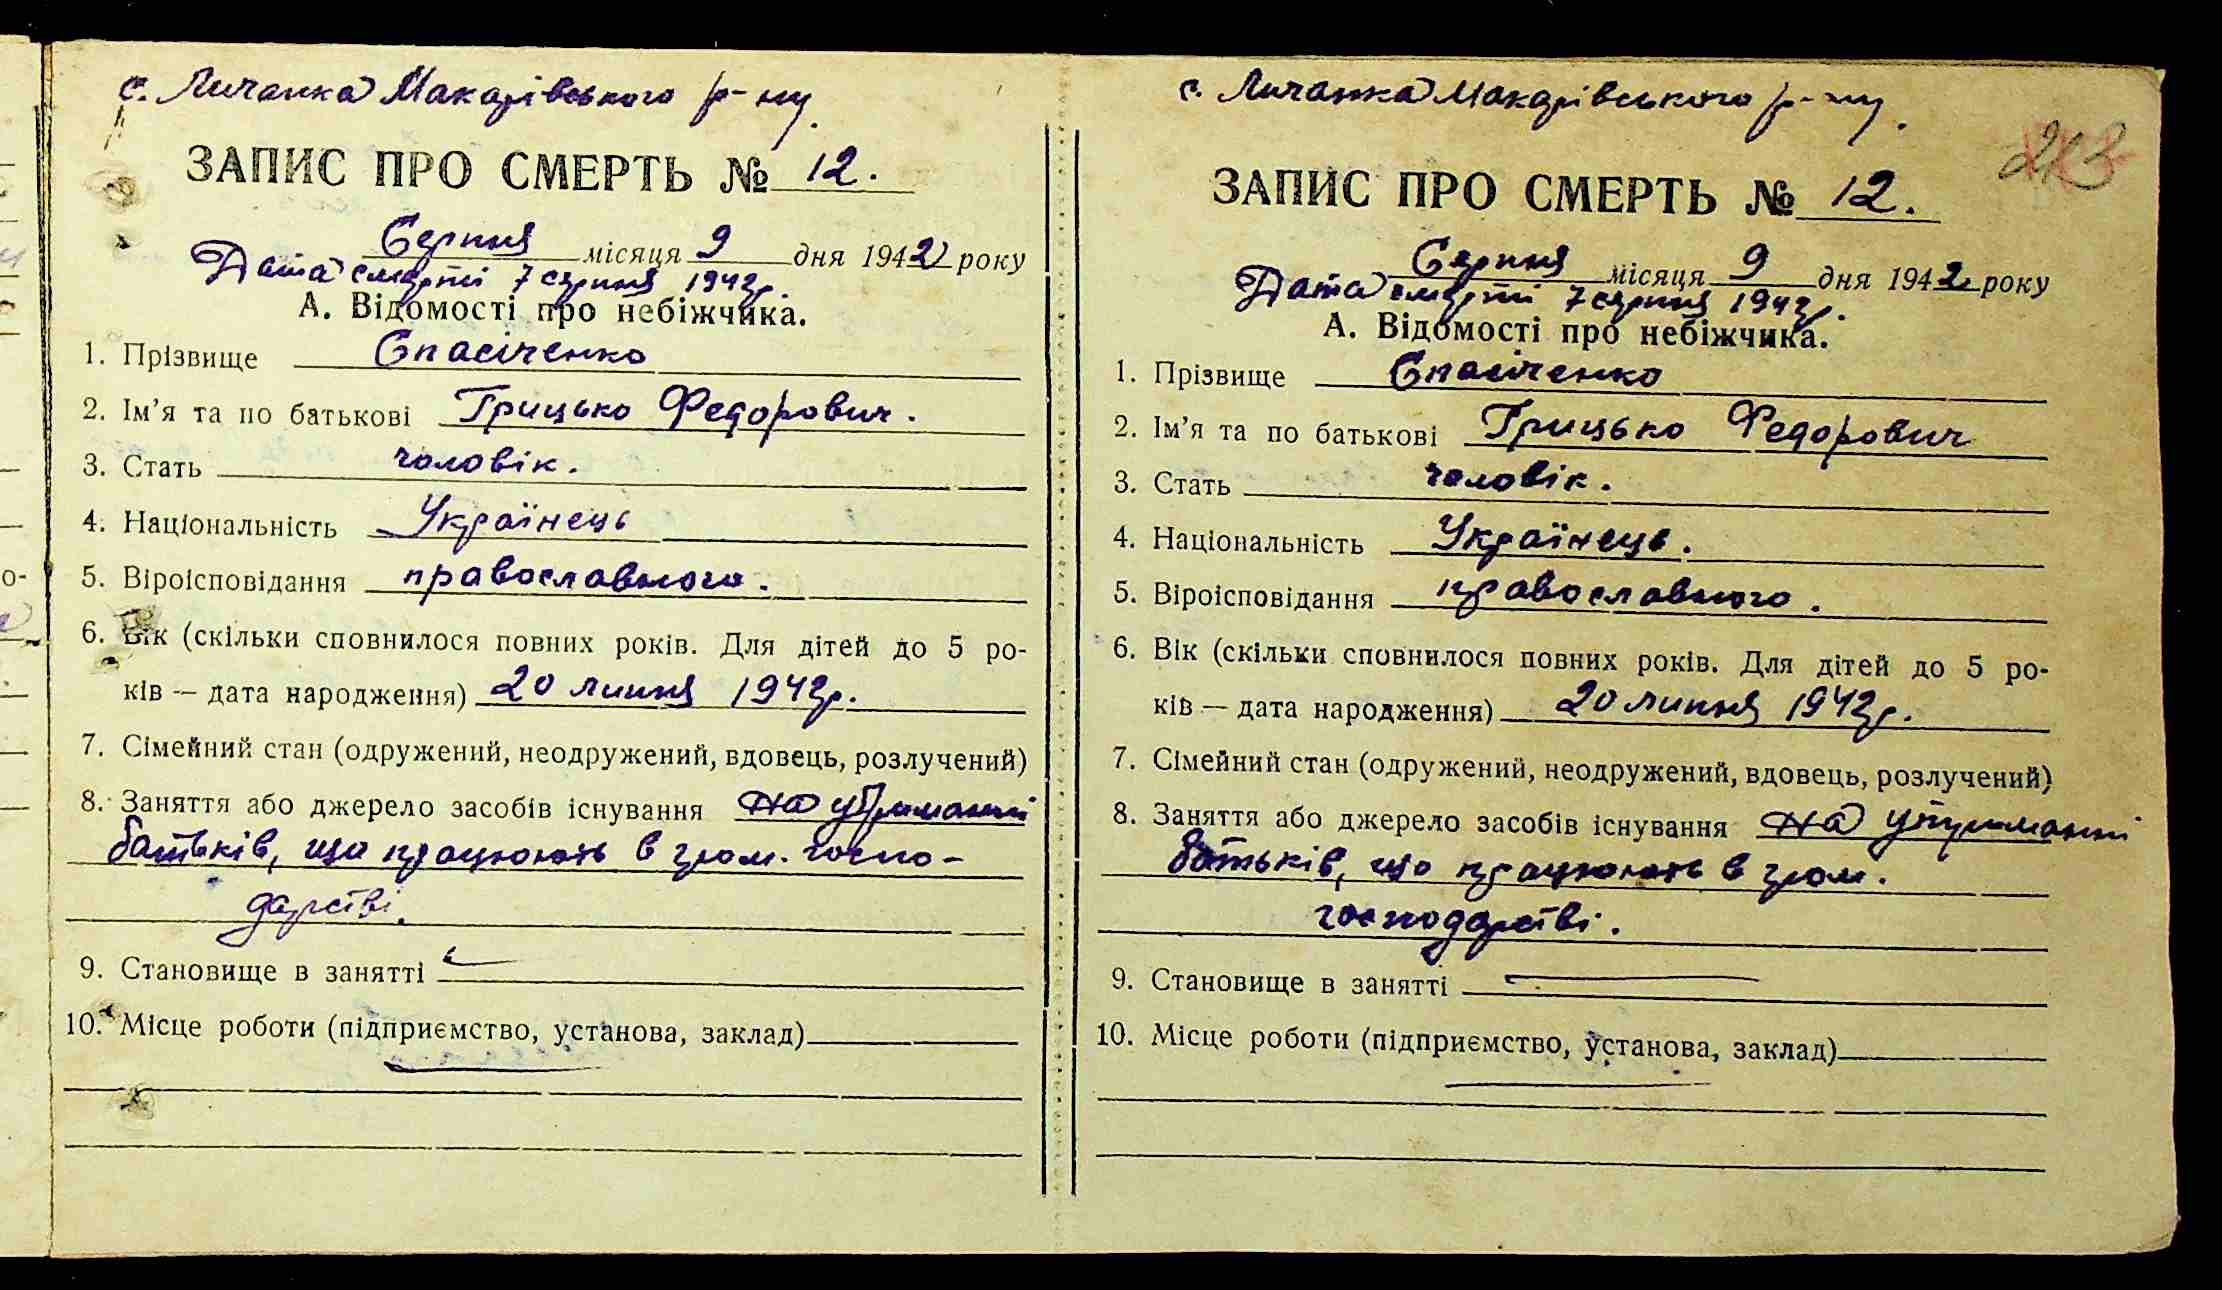 с. Личанка Макарівського р-ну.
ЗАПИС ПРО СМЕРТЬ № 12.
Серпня місяця 9 дня 1942 року
Дата смерті 7 серпня 1942р.
А. Відомості про небіжчика.
1. Прізвище Спасіченко
2. Ім'я та по батькові Грицько Федорович.
3. Стать чоловік.
4. Національність Українець
5. Віроісповідання православного.
6. Вік (скільки сповнилося повних років. Для дітей до 5 ро-
ків — дата народження) 20 липня 1942р.
7. Сімейний стан (одружений, неодружений, вдовець, розлучений)
8. Заняття або джерело засобів існування на утриманні
батьків, що працюють в гром. госпо-
дарстві.
9. Становище в занятті —
10. Місце роботи (підприємство, установа, заклад)
—
с. Личанка Макарівського р-ну.
213
ЗАПИС ПРО СМЕРТЬ № 12.
Серпня місяця 9 дня 1942 року
Дата смерті 7 серпня 1942р.
А. Відомості про небіжчика.
1. Прізвище Спасіченко
2. Ім'я та по батькові Грицько Федорович
3. Стать чоловік.
4. Національність Українець.
5. Віроісповідання православного.
6. Вік (скільки сповнилося повних років. Для дітей до 5 ро-
ків — дата народження) 20 липня 1942р.
7. Сімейний стан (одружений, неодружений, вдовець, розлучений)
8. Заняття або джерело засобів існування на утриманні
батьків, що працюють в гром.
господарстві.
9. Становище в занятті —
10. Місце роботи (підприємство, установа, заклад)
—